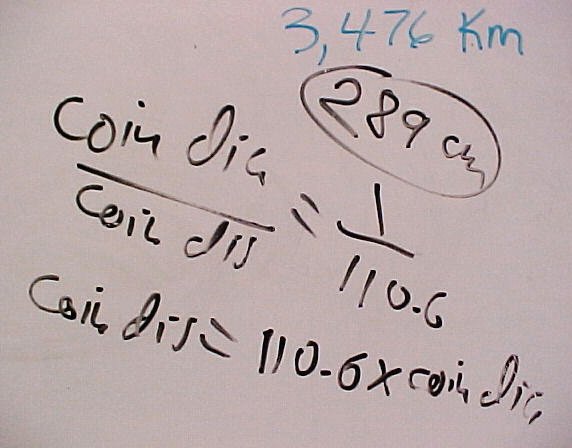 3,476 Km
289 cm
coin dia
coin dis
= 1
110.6
Coin dis = 110.6 x coin dia